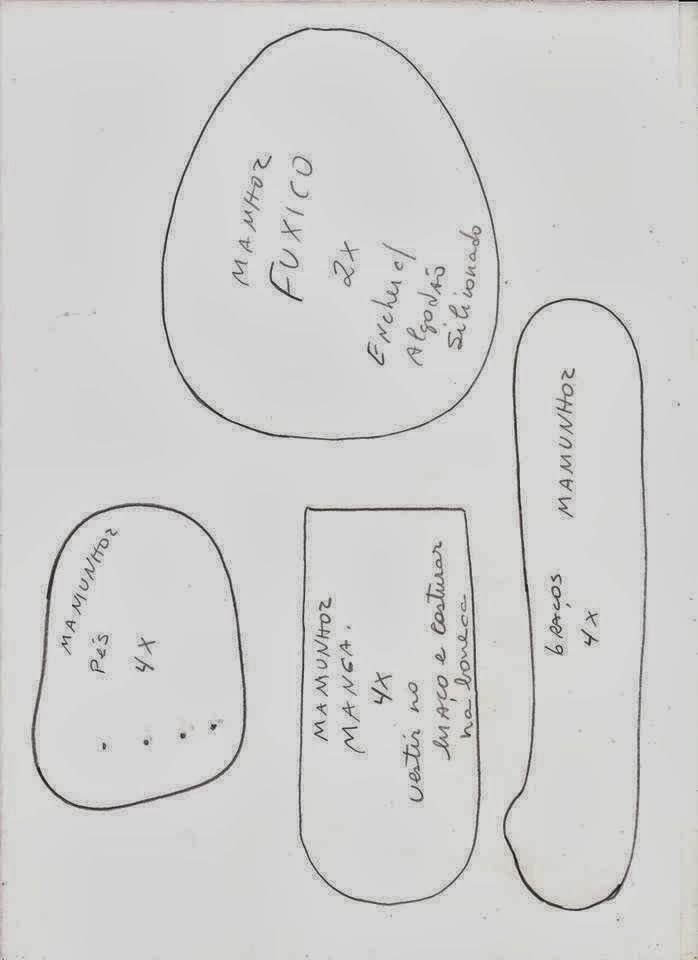 MAMHOZ
FUXICO
2X
ENcheR c/
AlgoDÃO
Silicionado
MAMUNHOZ
Pés
4X
MAMUNHOZ
MANGA.
4X
vestir no
e costurar
na boneca
bRAÇOS MAMUNHOZ
4X